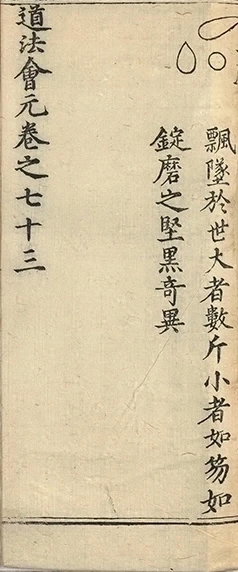 飄墜於世大者數斤小者如笏如
錠磨之堅黑奇異
道法會元卷之七十三